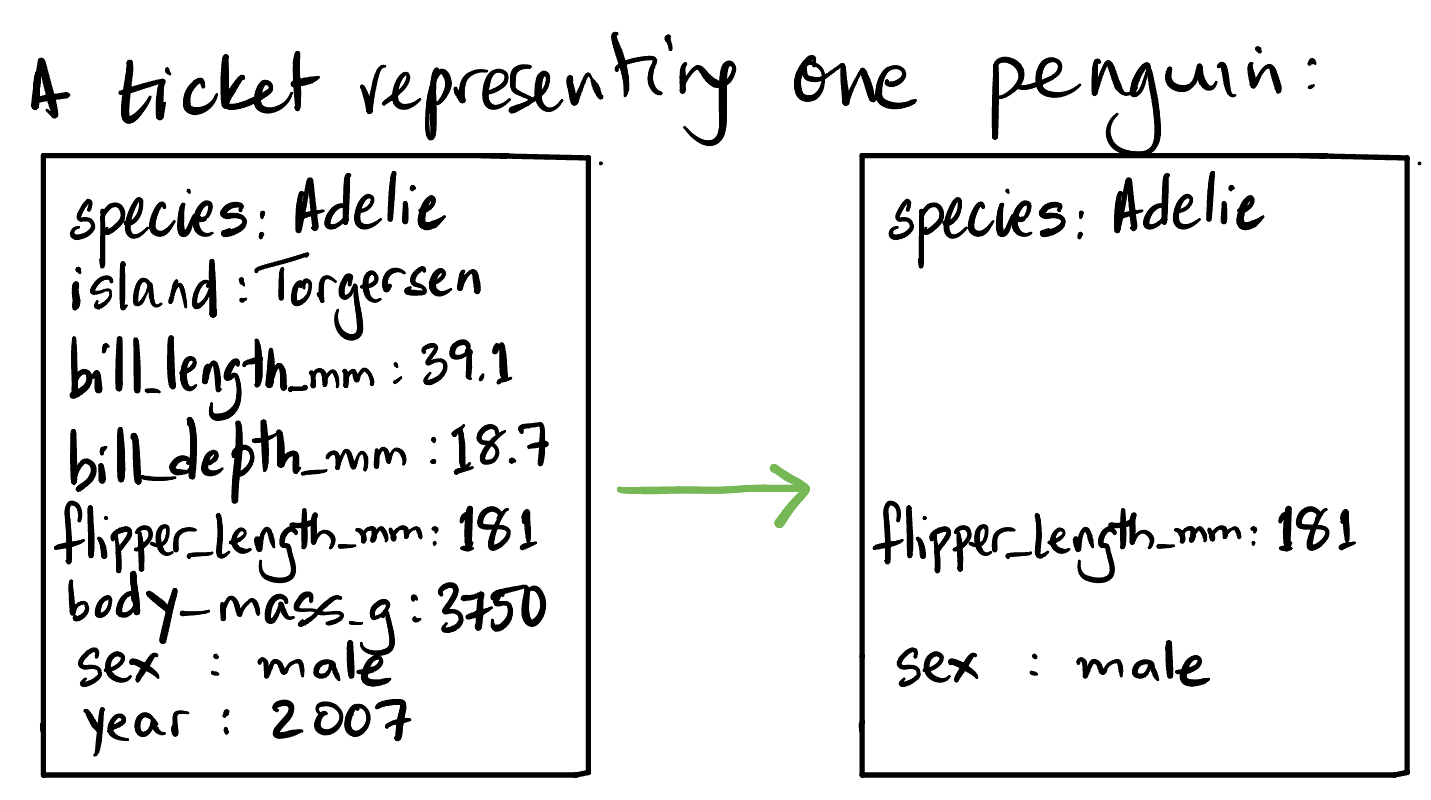 A ticket representing one penguin:
species: Adelie
island : Torgersen
bill_length_mm : 39.1
bill_depth_mm : 18.7
flipper_length_mm: 181
body_mass_g : 3750
sex : male
year : 2007
species: Adelie
flipper_length_mm: 181
sex : male